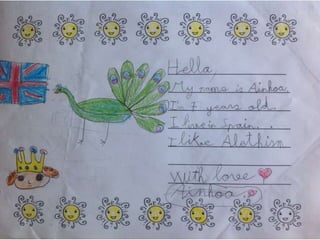 Hello,
My name is Ainhoa.
I'm 7 years old.
I live in Spain.
I like
With love
Ainhoa.